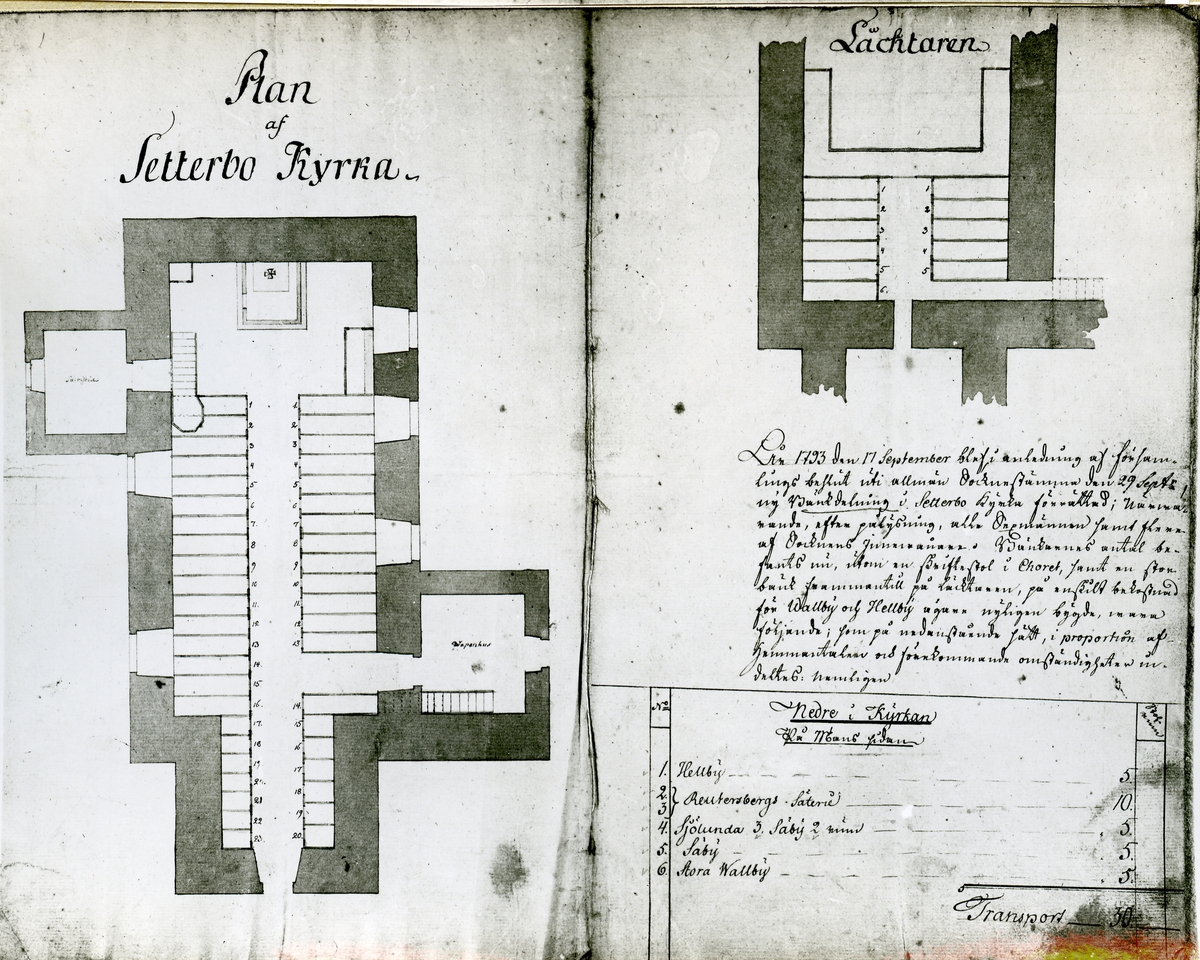 Plan
af
Setterbo Kyrka
Sacristia
1
2
3
4
5
6
7
8
9
10
11
12
13
14
15
16
17
18
19
20
21
22
23
1
2
3
4
5
6
7
8
9
10
11
12
13
14
15
16
17
18
19
20
Wapenhus
Läcktaren
1
2
3
4
5
6
1
2
3
4
5
År 1793 den 17 September blef i anledning af Församlings
beslut uti allmän Socknestämma den 29 Sept:
ny Bänkdelning i Setterbo Kyrka förrättad; Närwarande,
efter pålysning, alle Sexmännen samt flere
af Socknens Innewånare. Bänkarnes antal befants
nu, utom en skriftestol i Choret, samt en stor
bänk frammantill på Läcktaren, på enskilt bekostnad
för Wallby och Hellby ägare nyligen bygde, wara
följande; som på nedanstående sätt, i proportion af
Hemmantalen och förekommande omständigheter indeltes:
nemligen
No
Nedre i Kyrkan
På Mans sidan
1. Hellby 5.
2. 3 } Reutersbergs Säteri 10.
4. Sjölunda 3, Säby 2 rum 5.
5. Säby 5.
6. Stora Wallby 5.
Transport 30.